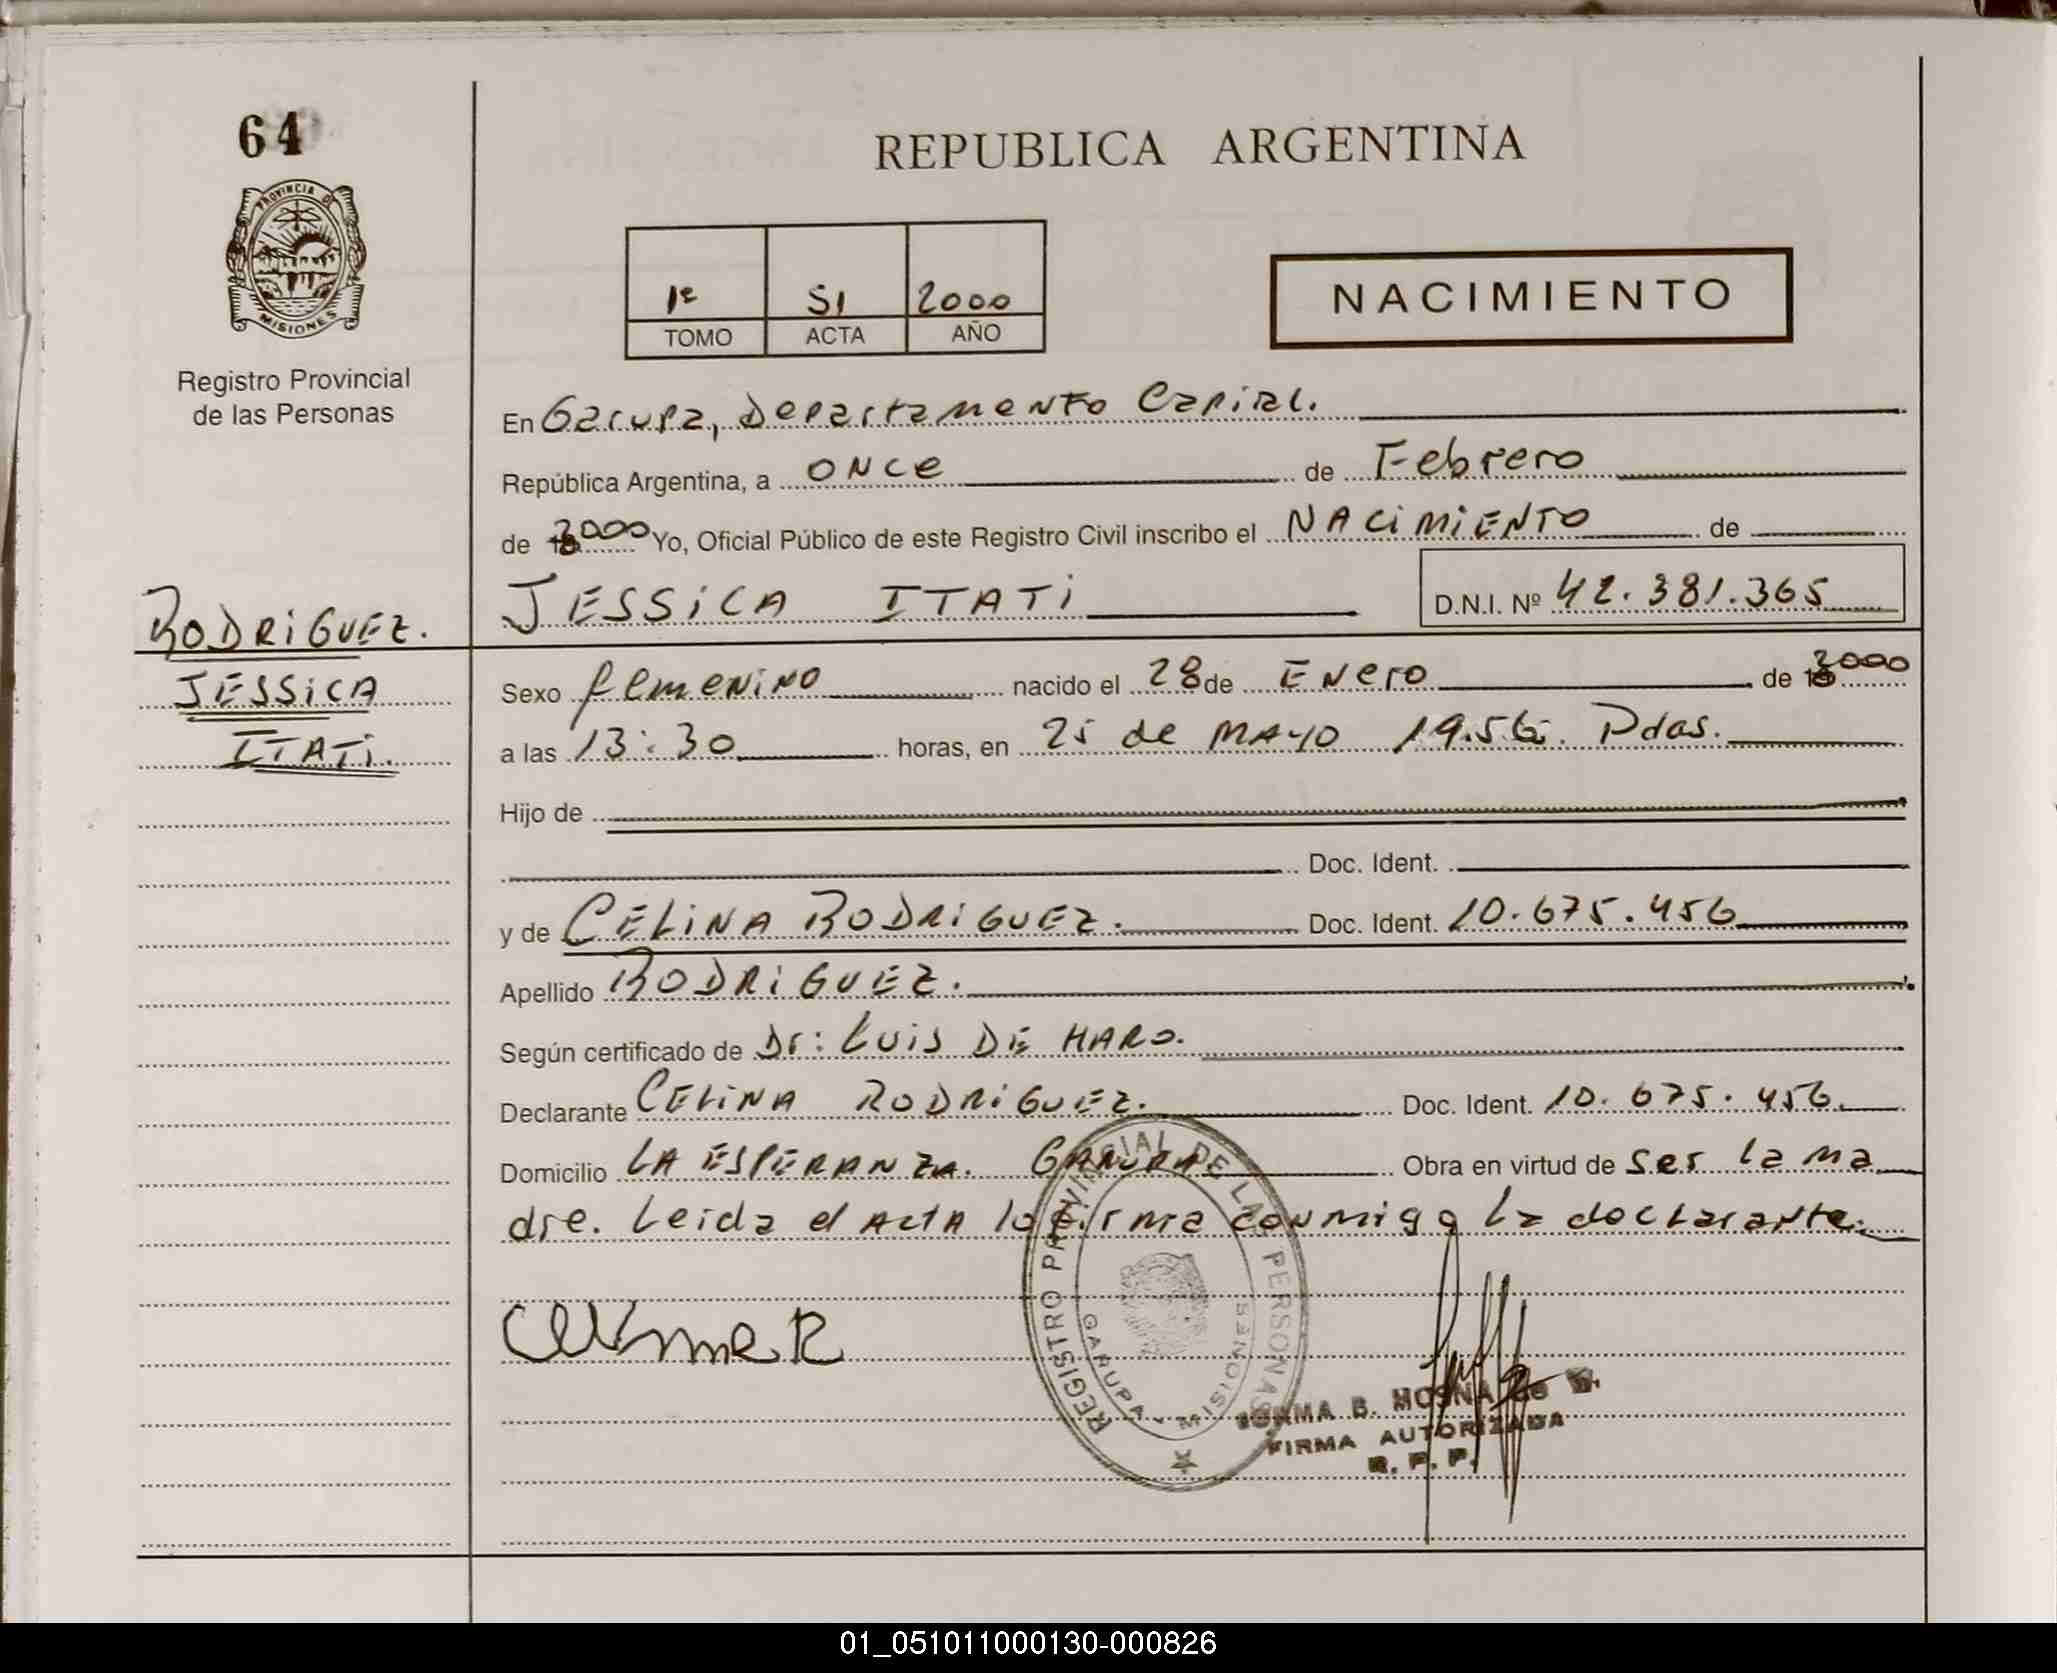 64
PROVINCIA DE
MISIONES
Registro Provincial
de las Personas
REPUBLICA ARGENTINA
1º 51 2000
TOMO ACTA AÑO
NACIMIENTO
En Garupa, Departamento Capital.
República Argentina, a once de Febrero
de 2000 Yo, Oficial Público de este Registro Civil inscribo el NACIMIENTO de
JESSICA ITATI D.N.I. Nº 42.381.365
RODRIGUEZ.
JESSICA
ITATI.
Sexo femenino nacido el 28 de Enero de 2000
a las 13:30 horas, en 25 de MAYO 1956. Pdas.
Hijo de
Doc. Ident.
y de CELINA RODRIGUEZ. Doc. Ident. 10.675.456
Apellido RODRIGUEZ.
Según certificado de Dr: Luis DE HARO.
Declarante CELINA RODRIGUEZ. Doc. Ident. 10.675.456
Domicilio LA ESPERANZA. GARUPA Obra en virtud de ser la ma
dre. Leida el ACTA la firma conmigo la declarante.
REGISTRO PROVINCIAL DE LAS PERSONAS
GARUPA - MISIONES
NORMA B. MOSNA de
FIRMA AUTORIZADA
R. P. P.
01_051011000130-000826